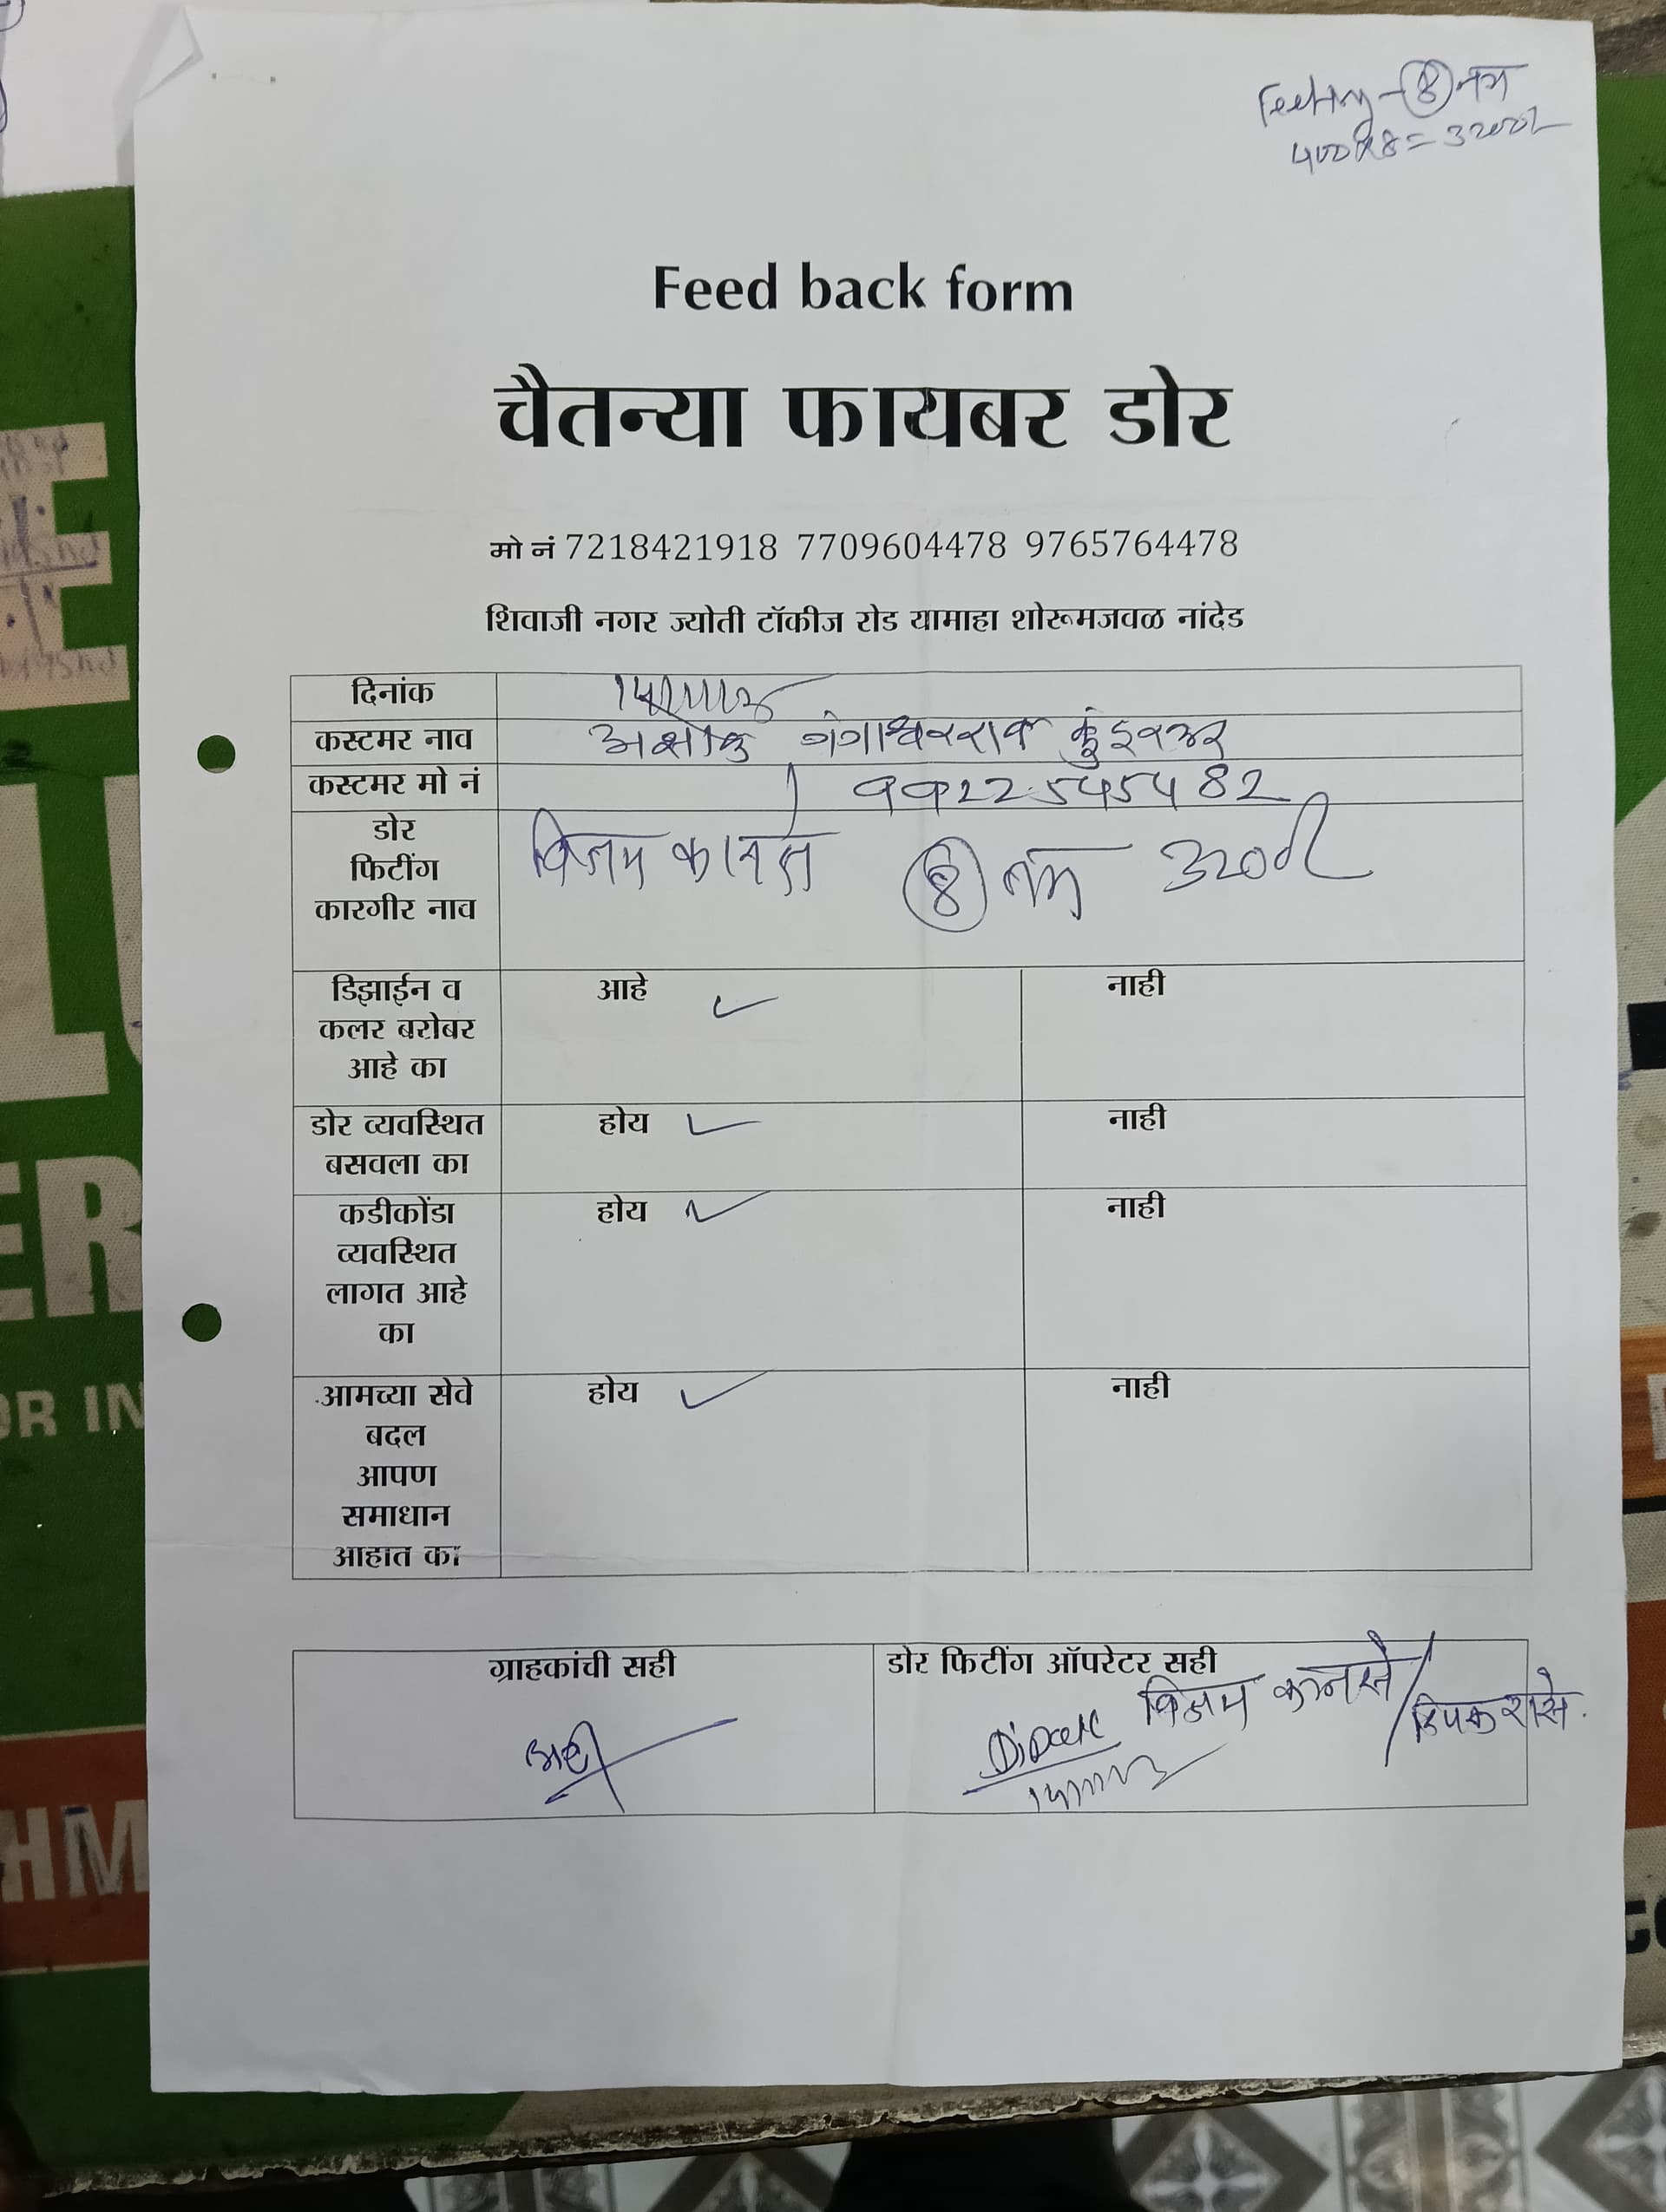 Feeting - 8 नग
400x8 = 3200/-
Feed back form
चैतन्या फायबर डोर
मो नं 7218421918 7709604478 9765764478
शिवाजी नगर ज्योती टॉकीज रोड यामाहा शोरूमजवळ नांदेड
दिनांक
कस्टमर नाव अशोक गंगाधरराव
कस्टमर मो नं
डोर
फिटींग
कारगीर नाव
विजय कानसे 8 नग 3200/-
डिझाईन व
कलर बरोबर
आहे का
आहे ✓ नाही
डोर व्यवस्थित
बसवला का
होय ✓ नाही
कडीकोंडा
व्यवस्थित
लागत आहे
का
होय ✓ नाही
आमच्या सेवे
बदल
आपण
समाधान
आहात का
होय ✓ नाही
ग्राहकांची सही डोर फिटींग ऑपरेटर सही
विजय कानसे /
Dipak